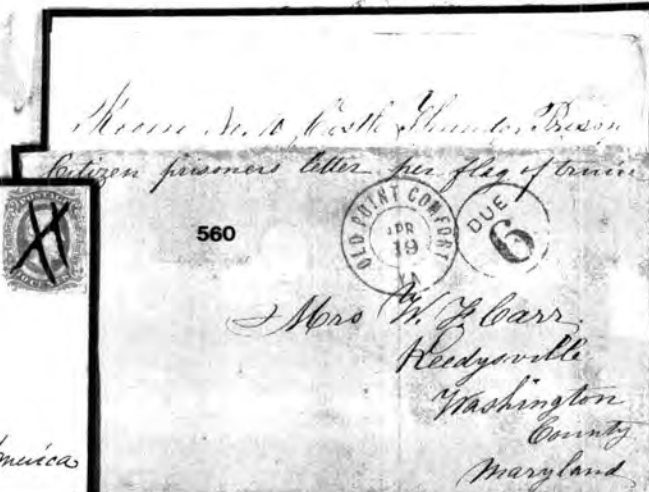 Room No. 10, Castle Thunder Prison
Citizen prisoners letter per flag of truce
560
OLD POINT COMFORT
APR
19
VA
DUE
6
Mrs W. F. Carr
Keedysville
Washington
County
Maryland
America